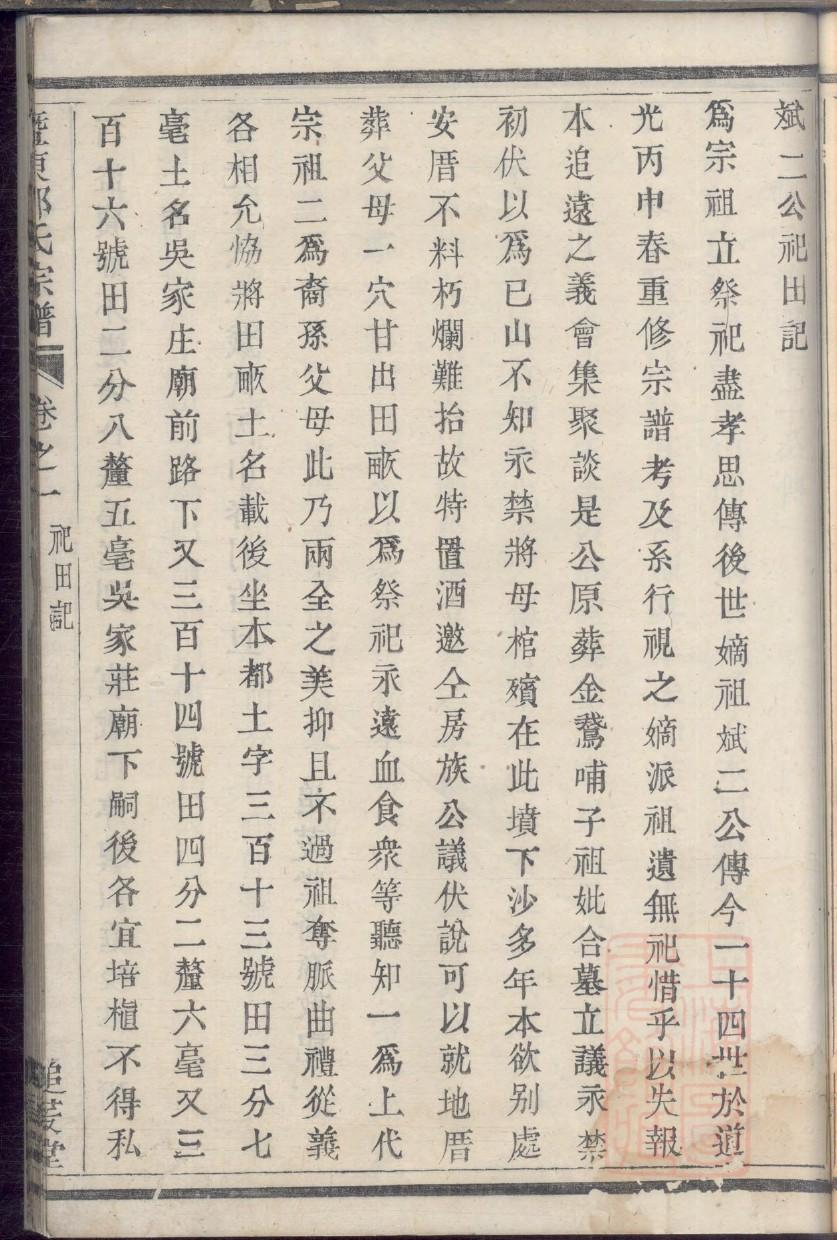 斌二公祀田記
爲宗祖立祭祀盡孝思傳後世嫡祖斌二公傳今一十四世於道
光丙申春重修宗譜考及系行視之嫡派祖遺無祀惜乎以失報
本追遠之義會集聚談是公原葬金鵞哺子祖妣合墓立議永禁
初伏以爲已山不知永禁將母棺殯在此墳下沙多年本欲别處
安厝不料朽爛難抬故特置酒邀仝房族公議伏說可以就地厝
葬父母一穴甘出田畝以爲祭祀永遠血食衆等聽知一爲上代
宗祖二爲裔孫父母此乃兩全之美抑且不過祖奪脈曲禮從義
各相允恊將田畝土名載後坐本都土字三百十三號田三分七
毫土名吳家庄廟前路下又三百十四號田四分二釐六毫又三
百十六號田二分八釐五毫吳家莊廟下嗣後各宜培植不得私
氏宗譜
卷之一
祀田記